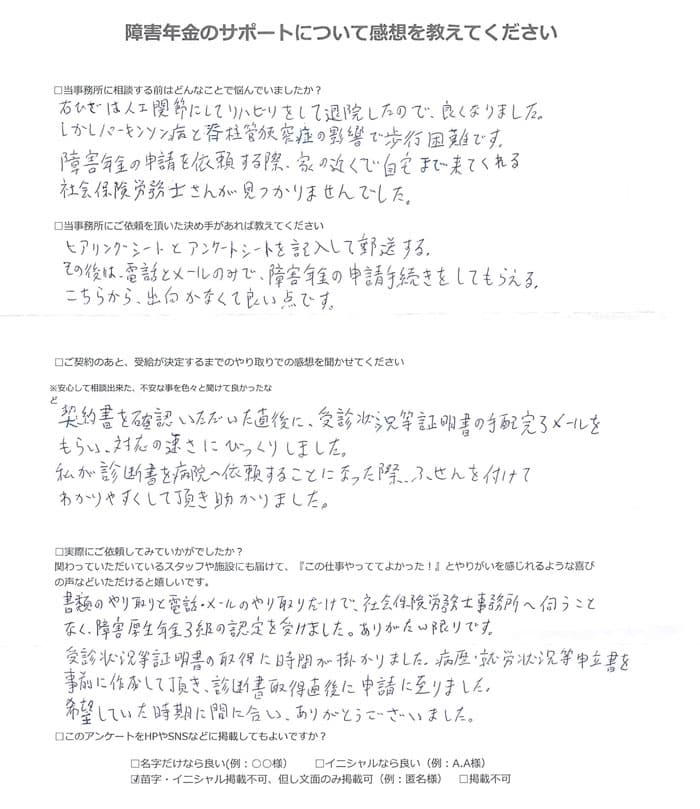 障害年金のサポートについて感想を教えてください
□当事務所に相談する前はどんなことで悩んでいましたか？
右ひざは人工関節にしてリハビリをして退院したので、良くなりました。
しかしパーキンソン病と脊柱管狭窄症の影響で歩行困難です。
障害年金の申請を依頼する際、家の近くで自宅まで来てくれる
社会保険労務士さんが見つかりませんでした。
□当事務所にご依頼を頂いた決め手があれば教えてください
ヒアリングシートとアンケートシートを記入して郵送する。
その後は、電話とメールのみで、障害年金の申請手続きをしてもらえる。
こちらから、出向かなくて良い点です。
□ご契約のあと、受給が決定するまでのやり取りでの感想を聞かせてください
※安心して相談出来た、不安な事を色々と聞けて良かったな
ど
契約書を確認いただいた直後に、受診状況等証明書の手配完了メールを
もらい、対応の速さにびっくりしました。
私が診断書を病院へ依頼することになった際、ふせんを付けて
わかりやすくして頂き助かりました。
□実際にご依頼してみていかがでしたか？
関わっていただいているスタッフや施設にも届けて、『この仕事やっててよかった！』とやりがいを感じれるような喜び
の声などいただけると嬉しいです。
書類のやり取りと電話・メールのやり取りだけで、社会保険労務士事務所へ伺うこと
なく、障害厚生年金3級の認定を受けました。ありがたい限りです。
受診状況等証明書の取得に時間が掛かりました。病歴・就労状況等申立書を
事前に作成して頂き、診断書取得直後に申請に至りました。
希望していた時期に間に合い、ありがとうございました。
□このアンケートをHPやSNSなどに掲載してもよいですか？
□名字だけなら良い(例：○○様） □イニシャルなら良い（例：A.A様）
☑苗字・イニシャル掲載不可、但し文面のみ掲載可（例：匿名様） □掲載不可